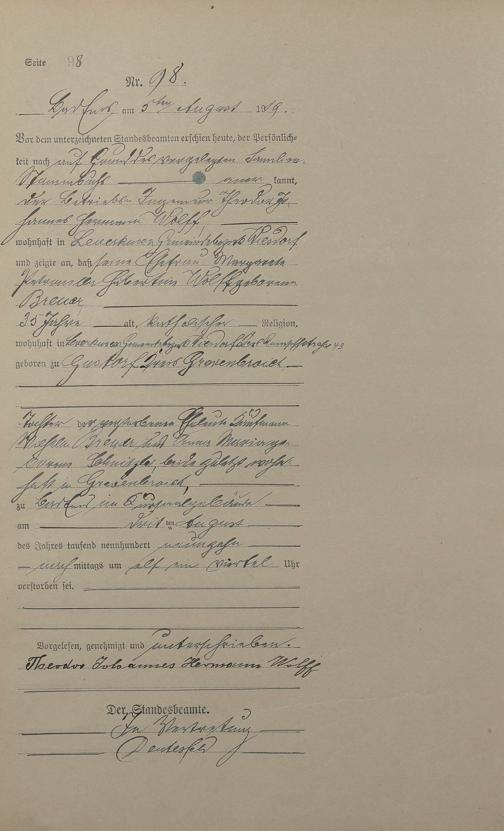 Seite 98
Nr. 98.
Bad Ems am 5ten August 1919.
Vor dem unterzeichneten Standesbeamten erschien heute, der Persönlich-
keit nach auf Grund des vorgelegten Familien-
Stammbuchs aner kannt,
der Betriebs-Ingenieur Theodor Jo-
hannes Hermann Wolff,
wohnhaft in Leverkusen Gemeindebezirk Wiesdorf
und zeigte an, daß seine Ehefrau Margarete
Petronella Hubertine Wolff geborene
Breuer,
35 Jahre alt, katholischer Religion,
wohnhaft in Leverkusen Gemeindebezirk Wiesdorf 43
geboren zu Gustorf Kreis Grevenbroich
Tochter der verstorbenen Eheleute Kaufmann
Wilhelm Breuer und Anna Maria ge-
borene Schnitzler, beide zuletzt wohn-
haft in Grevenbroich,
zu Bad Ems im Kursaalgebäude
am dritten August
des Jahres tausend neunhundert neunzehn
nach mittags um elf ein viertel Uhr
verstorben sei.
Vorgelesen, genehmigt und unterschrieben.
Theodor Johannes Hermann Wolff
Der Standesbeamte.
In Vertretung